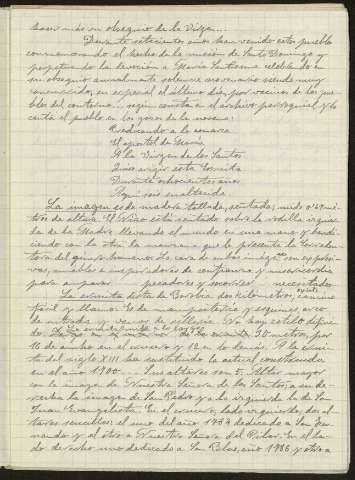 hacer más en obsequio de la Virgen...
Durante setecientos años han venido estos pueblos
conmemorando el hecho de la misión de Santo Domingo y
perpetuando la devoción a María Santísima celebrando en
su obsequio anualmente solemne novenario siendo muy
concurrido, en especial el último día, por vecinos de los pue-
blos del contorno... según consta en el archivo parroquial y lo
canta el pueblo en los gozos de la novena:
Predicando a la comarca
El apóstol de María
A la Virgen de los Santos
Quiso erigir esta Ermita
Durante ochocientos años
Aquí sois enaltecida
La imagen es de madera tallada, sentada; mide 0'67 me-
tros de altura. El Niño está sentado sobre la rodilla izquier-
da de la Madre llevando el mundo en una mano y bendi-
ciendo con la otra la manzana que le presenta la Corredento-
ra del género humano. La cara de ambas imágenes son expresi-
vas, amables e inspiradoras de confianza y misericordia
para pecadores y necesitados
La ermita dista de dos kilómetros, camino
fácil y llano. Es de mampostería y algunos arcos
de entrada y varios de sillería. No hay estilo defini-
do. La ermita mide 30 metros, por
16 de ancho en el crucero y 12 en lo demás. A la ermi-
ta del siglo XIII ha sustituido la actual construida
en el año 1900... Sus altares son 5. Altar mayor
con la imagen de Nuestra Señora de los Santos, a su de-
recha la imagen de San Pedro y a la izquierda la de San
Juan Evangelista. En el crucero, lado izquierdo, dos al-
tares sencillos: el uno del año 1734 dedicado a San Fer-
nando y el otro a Nuestra Señora del Pilar. En el la-
do derecho uno dedicado a San Blas, año 1786 y otro a